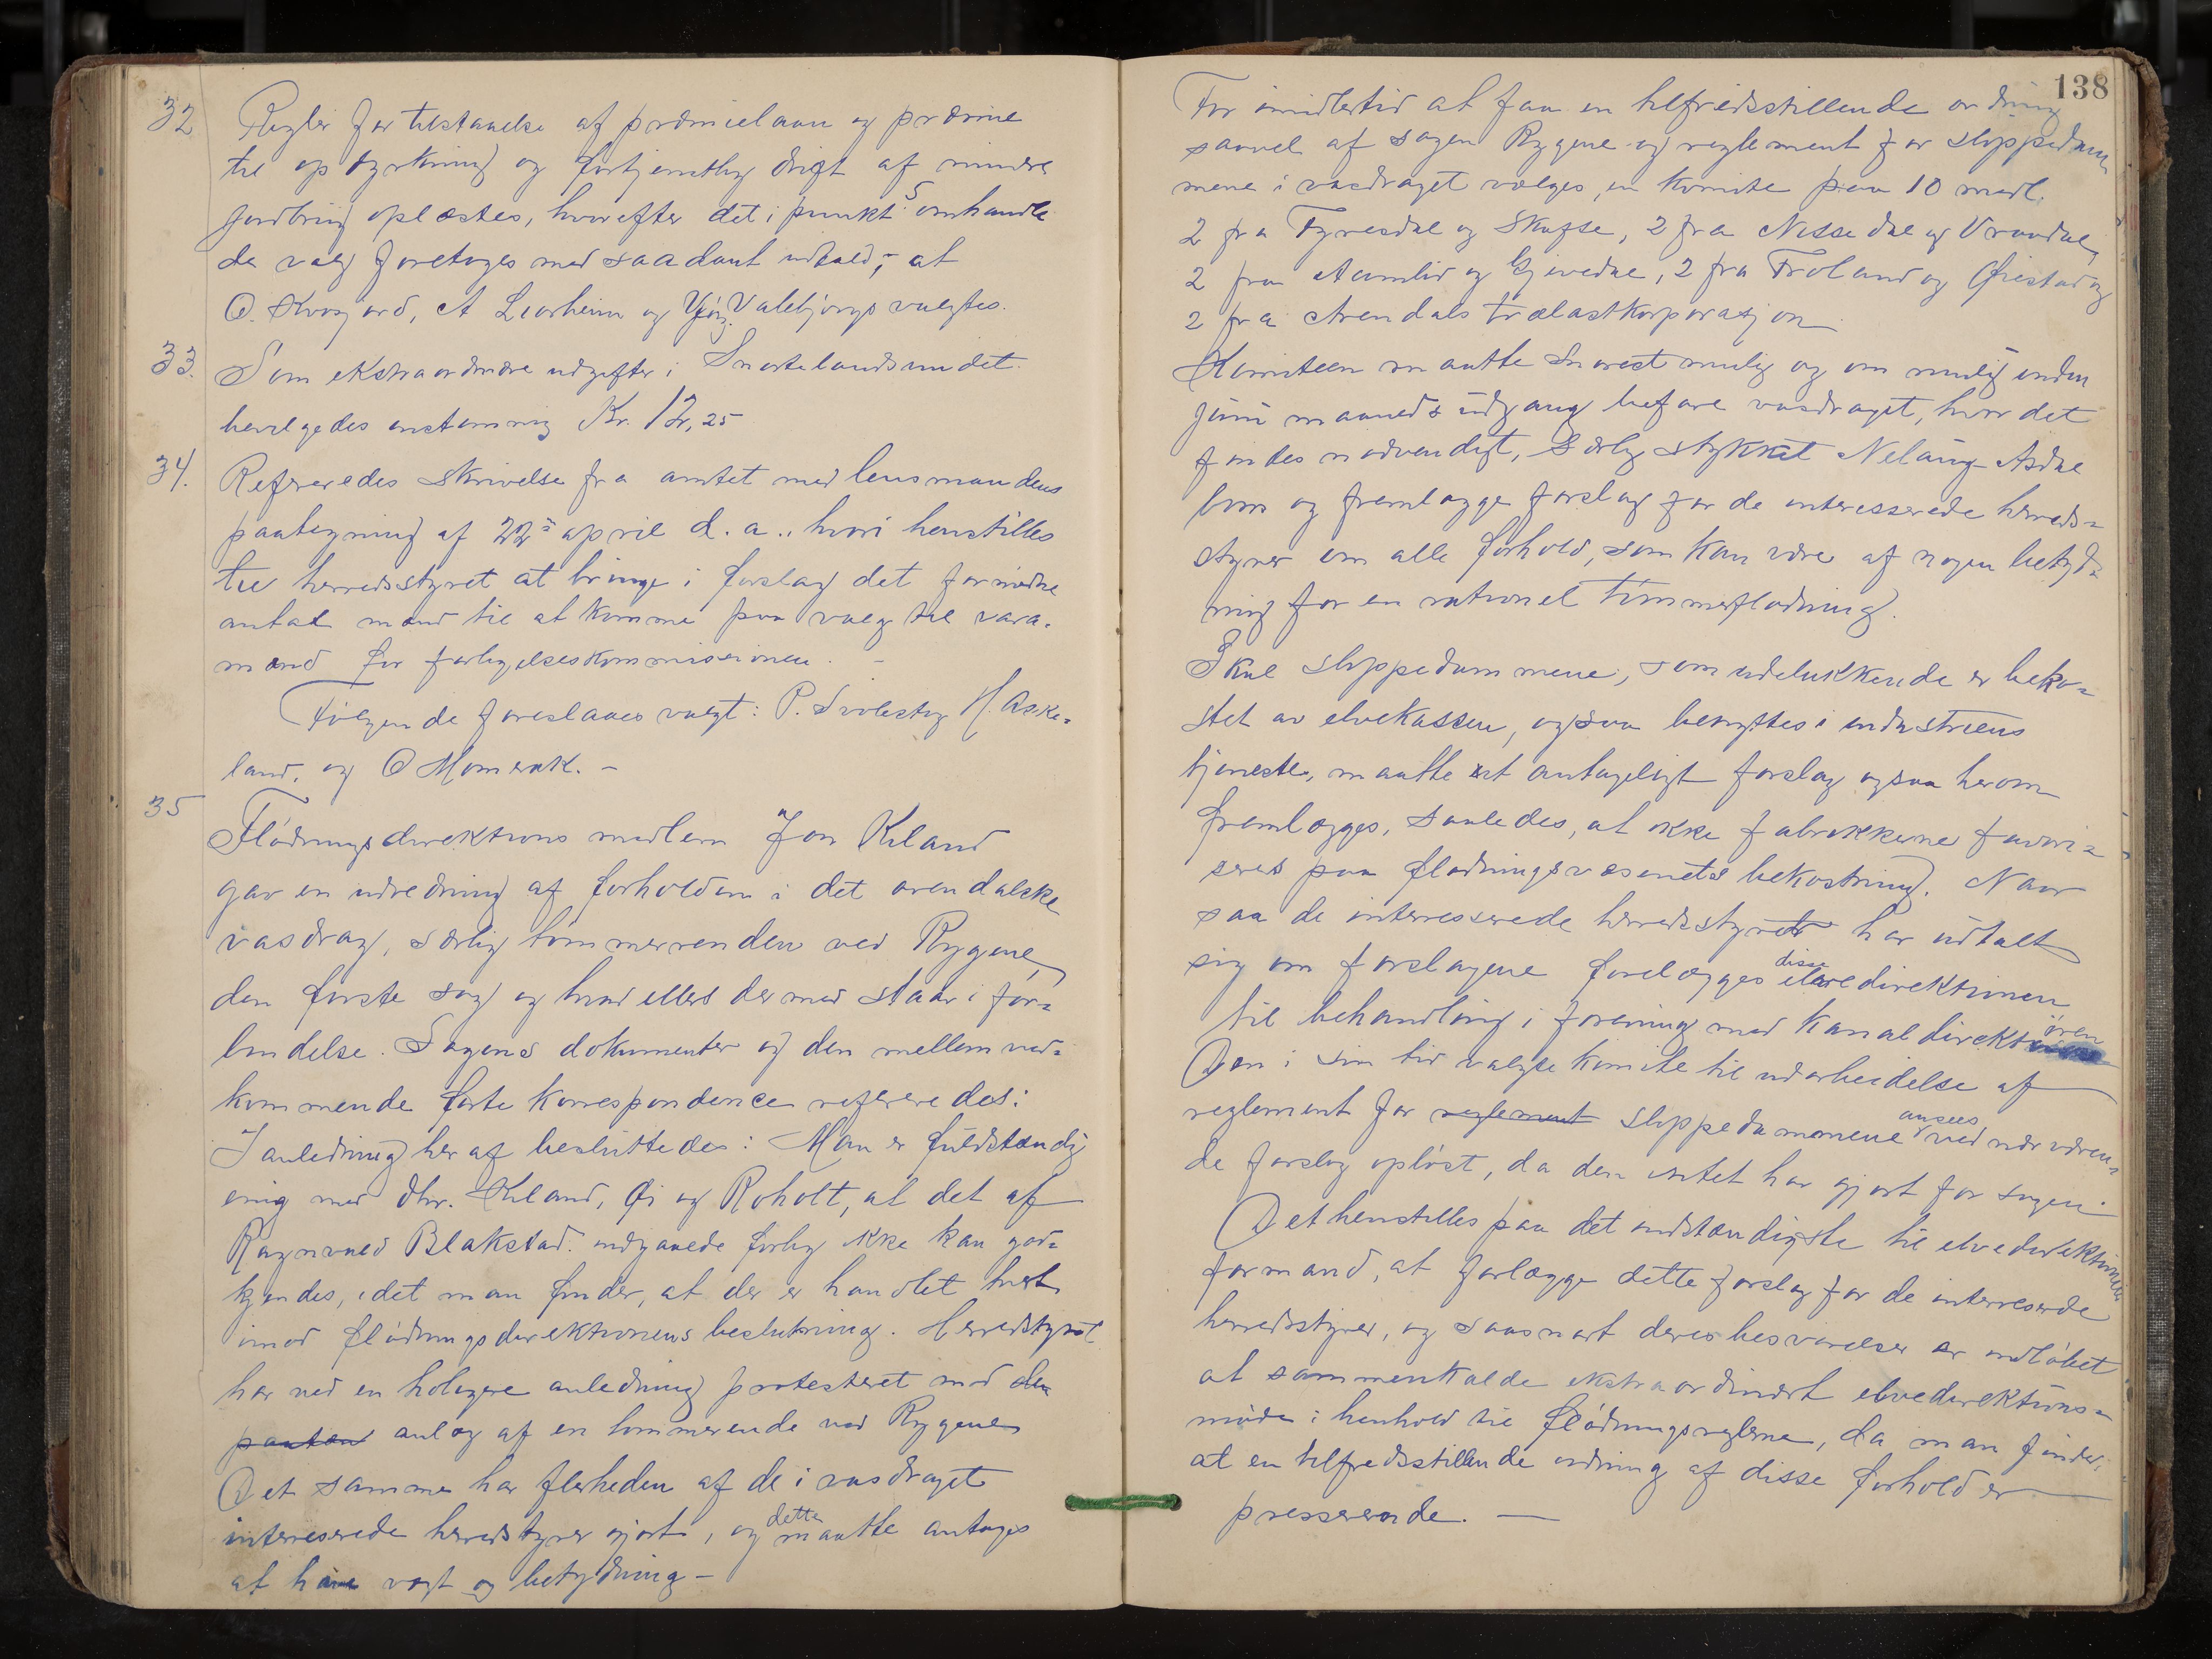 32 Regler for tilstaaelse af præmielaan og præmie
til opdyrkning og fortjenstlig drift af mindre
jordbrug oplæstes, hvorefter det i punkt 5 omhandle
de valg foretoges med saadant udfald, at
O. Kvosjord, A Liorheim og Valebjørgs valgtes.
33. Som ekstraordinære udgifter i Snartelandsundet
bevilgedes enstemmig Kr. 12,25
34. Refereredes skrivelse fra amtet med lensmandens
paategning af 22de april d. a., hvori henstilles
til herredsstyret at bringe i forslag det fornødne
antal mænd til at komme paa valg til vara-
mænd for forligelseskommissionen. –
Følgende foreslaaes valgt: P. Svolestig H. Aske-
land, og O Momrak. –
35 Flødningsdirektions medlem Jon Kiland
gav en udredning af forholdene i det arendalske
vasdrag, særlig tømmerrenden ved Rygene,
den første sag og hvad ellers dermed staar i for-
bindelse. Sagens dokumenter og den mellem ved-
kommende førte korrespondence refereredes:
I anledning heraf besluttedes: Man er fuldstændig
enig med dhr. Kiland, Øi og Roholt, at det af
Ragnvald Blakstad. indgaaede forlig ikke kan god-
kjendes, idet man finder, at der er handlet tvert
imod flødningsdirektionens beslutning. Herredstyret
har ved en tidligere anledning protesteret mod den
anlæg af en tømmerrende ved Rygene
Det samme har flerheden af de i vasdraget
interesserede herredstyrer gjort, og dette maatte antages
at have vægt og betydning –
138
For imidlertid at faa en tilfredsstillende ordning
saavel af sagen Rygene og reglement for slippedam
mene i vasdraget vælges en komite paa 10 medl.
2 fra Fyresdal og Skafse, 2 fra Nissedal og Vraadal,
2 fra Aamlid og Gjevedal, 2 fra Froland og Øiestad og
2 fra Arendals trælastkorporasjon
Komiteen maatte snarest mulig og om mulig inden
juni maaneds udgang befare vasdraget, hvor det
findes nødvendigt, særlig stykket Nelaug – Asdal
bom og fremlægge forslag for de interesserede herreds-
styrer om alle forhold, som kan være af nogen betyd-
ning for en rationel tømmerflødning.
Skal slippedammene, som udelukkende er beko-
stet av elvekassen, ogsaa benyttes i industriens
tjeneste, maatte et antageligt forslag ogsaa herom
fremlægges, saaledes, at ikke fabrikkerne favori-
seres paa flødningsvæsenets bekostning. Naar
saa de interresserede herredsstyrer har udtalt
sig om forslagene forelægges disse elvedirektionen
til behandling i forening med kanaldirektøren
Den i sin tid valgte komite til udarbeidelse af
reglement for reglement slippedammene ansees ved nærværen-
de forslag opløst, da den intet har gjort for sagen.
Det henstilles paa det indstændigste til elvedirektionens
formand, at forlægge dette forslag for de interreserede
herredsstyrer, og saasnart deres besvarelser er indløbet
at sammenkalde ekstraordinært elvedirektions-
møde i henhold til flødningsreglerne, da man finder,
at en tilfredsstillende ordning af disse forhold er
presserende. –